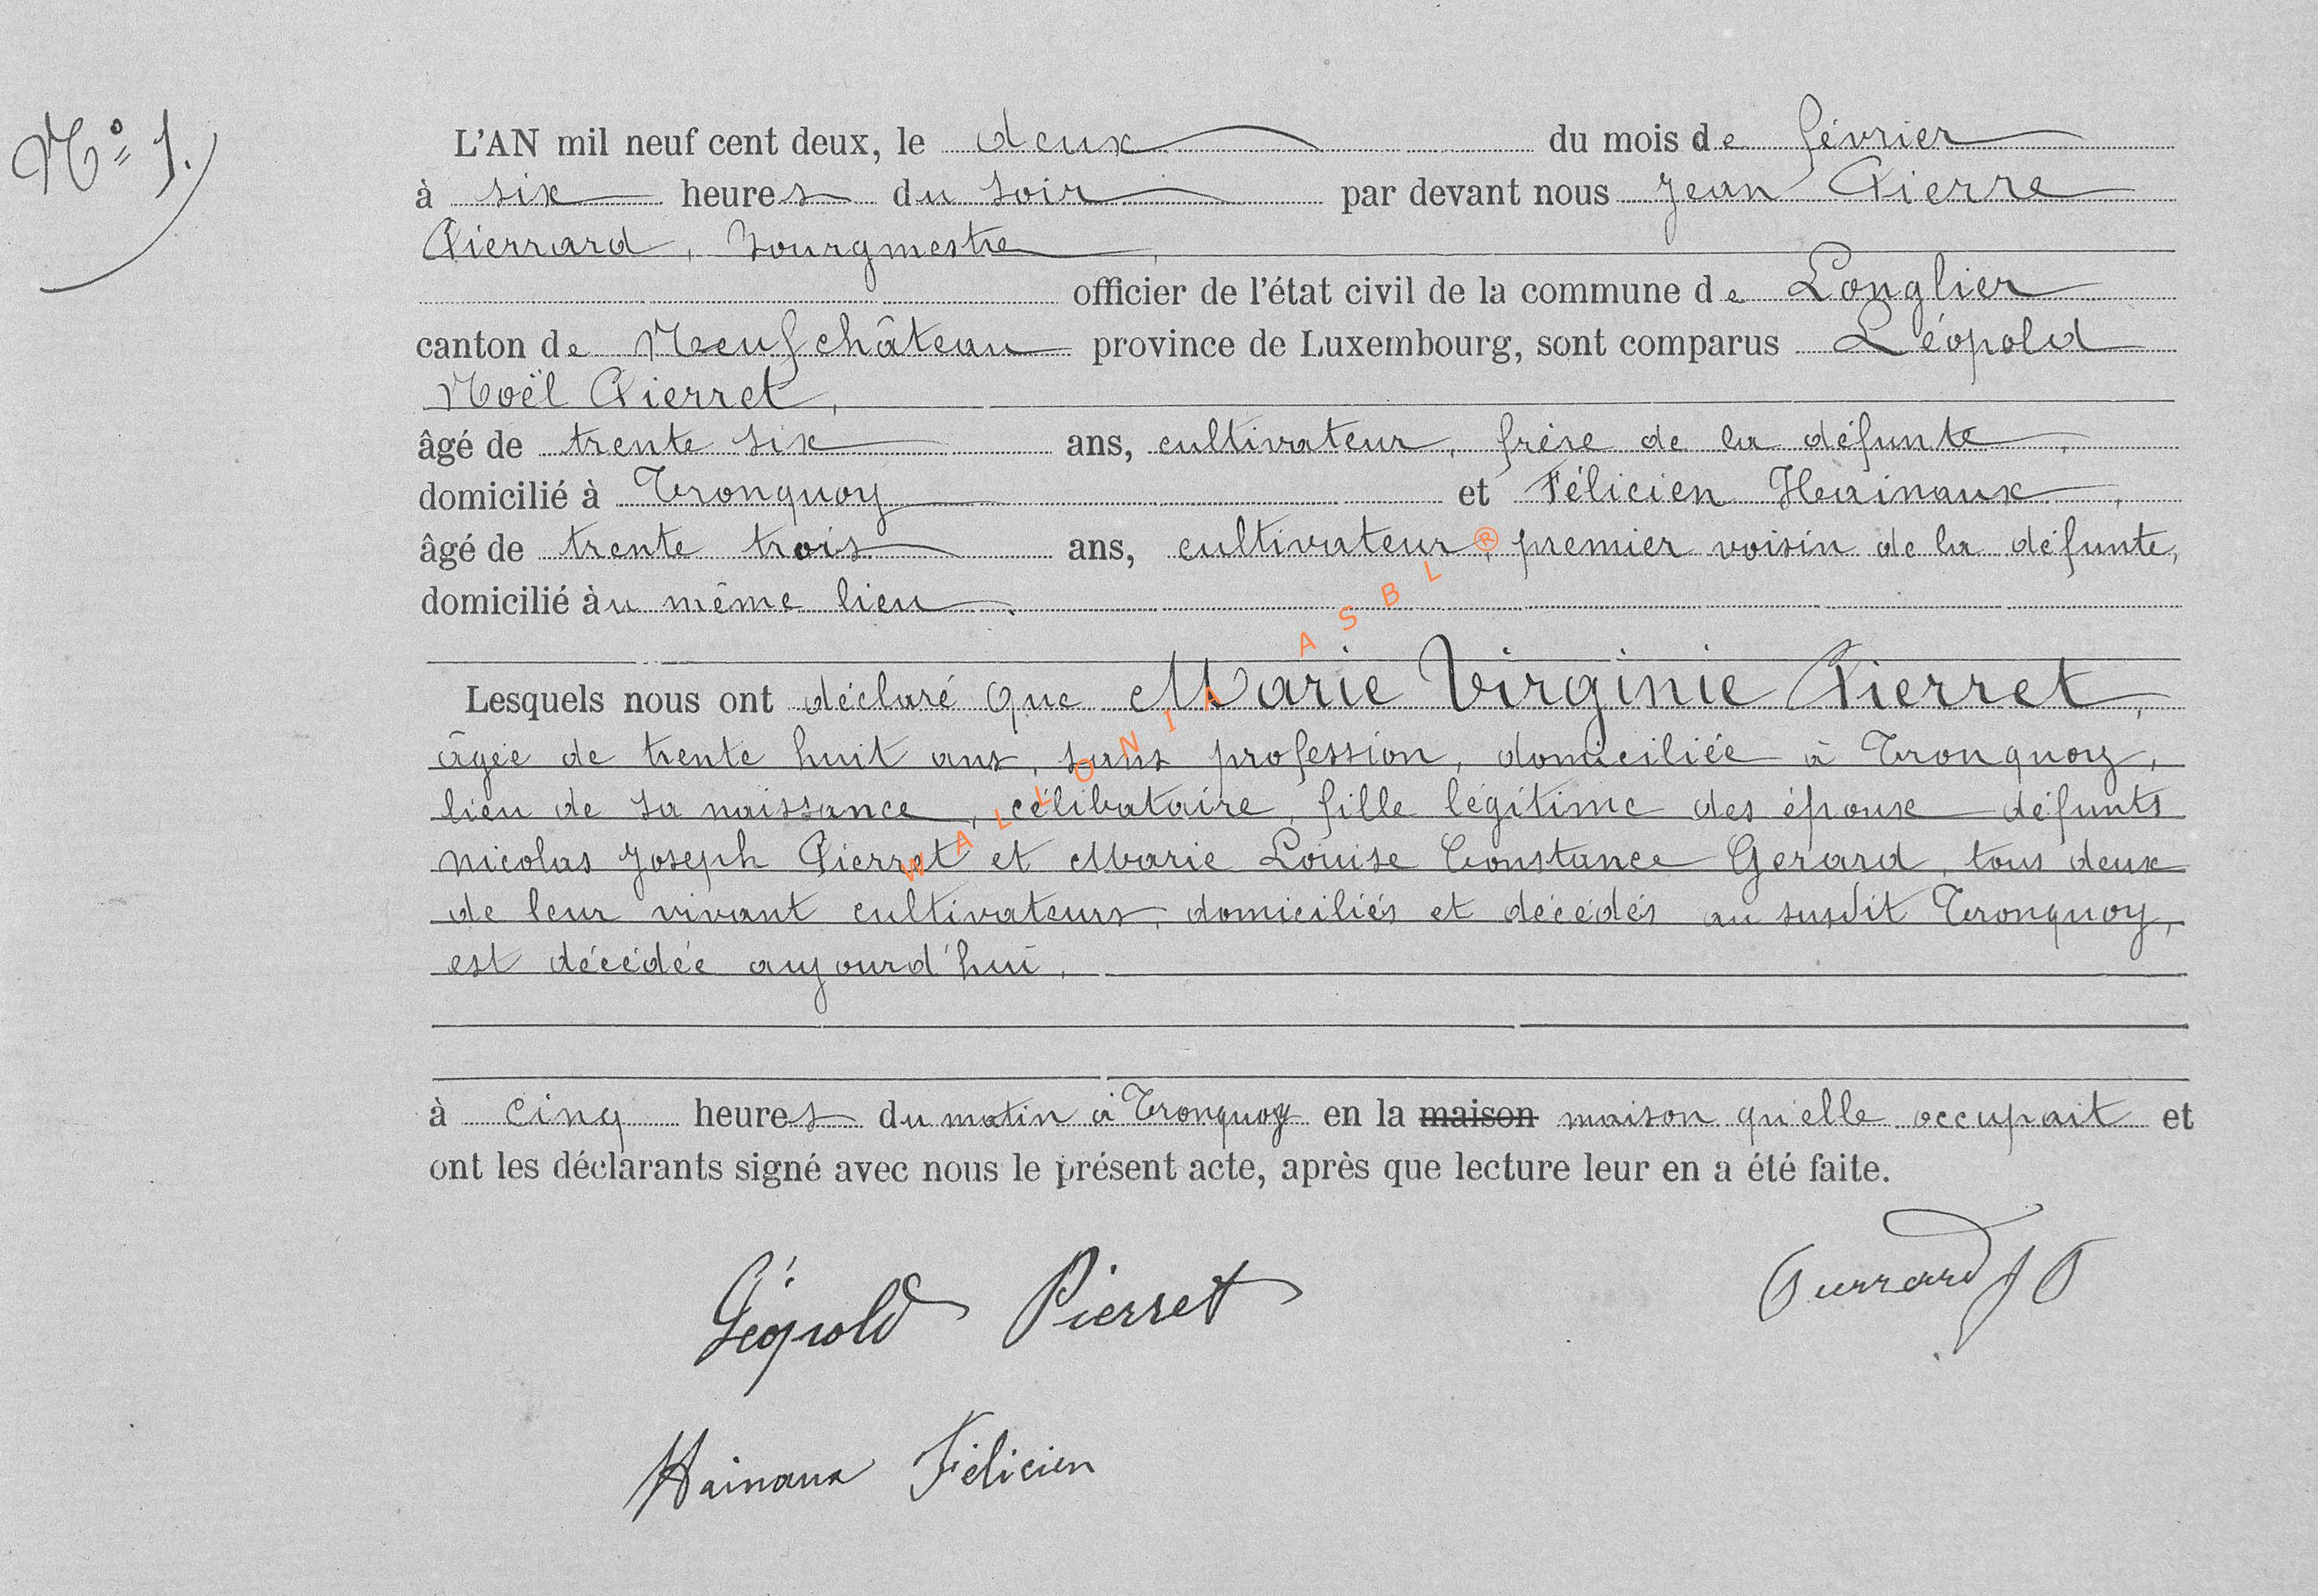 N° 1.
L'AN mil neuf cent deux, le deux du mois de février
à six heures du soir par devant nous Jean Pierre
Pierrard, bourgmestre,
officier de l'état civil de la commune de Longlier
canton de Neufchâteau province de Luxembourg, sont comparus Léopold
Noël Pierret,
âgé de trente six ans, cultivateur, frère de la défunte,
domicilié à Tronquoy et Félicien Hainaux,
âgé de trente trois ans, cultivateur, premier voisin de la défunte,
domicilié au même lieu.
Lesquels nous ont déclaré que Marie Virginie Pierret,
âgée de trente huit ans, sans profession, domiciliée à Tronquoy,
lieu de sa naissance, célibataire, fille légitime des époux défunts
Nicolas Joseph Pierret et Marie Louise Constance Gerard, tous deux
de leur vivant cultivateurs, domiciliés et décédés au susdit Tronquoy,
est décédée aujourd'hui,
à cinq heures du matin à Tronquoy en la maison maison qu'elle occupait et
ont les déclarants signé avec nous le présent acte, après que lecture leur en a été faite.
Léopold Pierret
Pierrard J P
Hainaux Félicien
WALLONIA ASBL ®